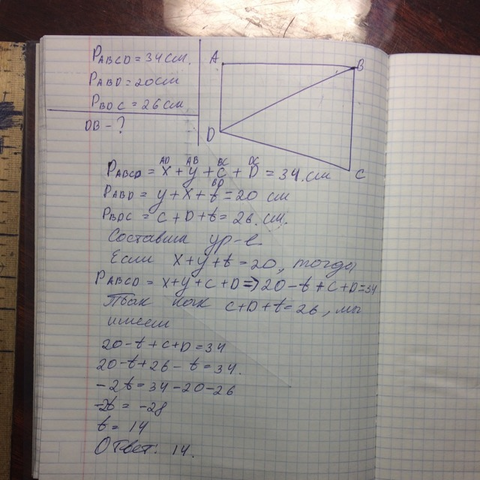 PABCD = 34 см.
PABD = 20 см
PBDC = 26 см
DB - ?
A
B
D
C
AD AB BC DC
PABCD = x + y + c + D = 34 см
BD
PABD = y + x + t = 20 см
PBDC = c + D + t = 26 см.
Составим ур-е.
Если x + y + t = 20, тогда
PABCD = x + y + c + D => 20 - t + c + D = 34
Так как c + D + t = 26, мы
имеем
20 - t + c + D = 34
20 - t + 26 - t = 34.
-2t = 34 - 20 - 26
-2t = -28
t = 14
Ответ. 14.